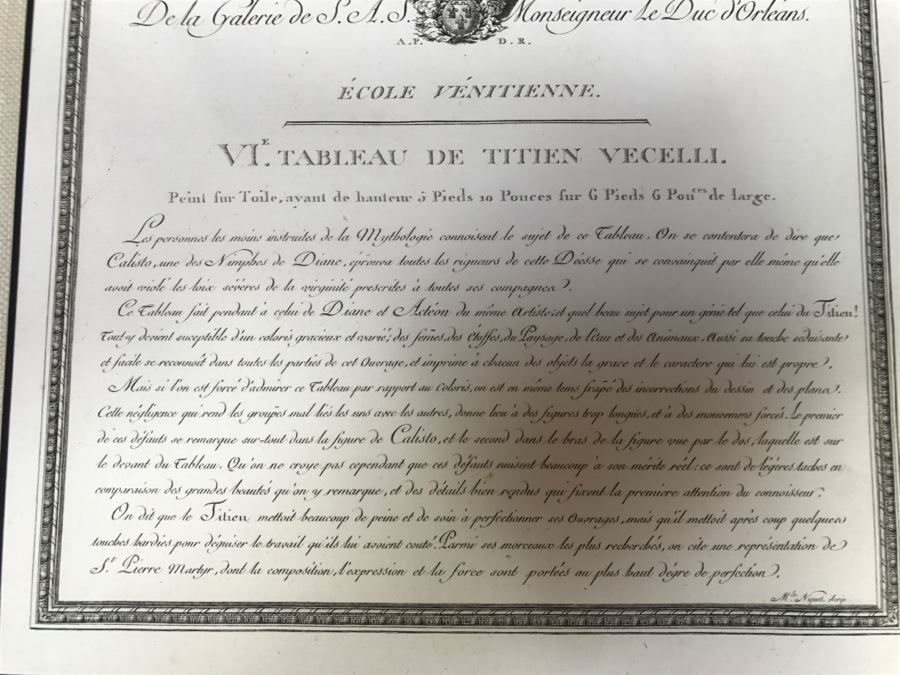 De la Galerie de S. A. S. Monseigneur Le Duc d'Orléans.
A. P. D. R.
ÉCOLE VÉNITIENNE.
VI.E TABLEAU DE TITIEN VECELLI.
Peint sur Toile, ayant de hauteur 5 Pieds 10 Pouces sur 6 Pieds 6 Pou.ces de large.
Les personnes les moins instruites de la Mythologie connoisent le sujet de ce Tableau. On se contentera de dire que
Calisto, une des Nimphes de Diane, éprouva toutes les rigueurs de cette Déesse qui se convainquit par elle même qu'elle
avoit violé les loix sévères de la virginité prescrites à toutes ses compagnes.
Ce Tableau fait pendant à celui de Diane et Actéon du même Artiste: et quel beau sujet pour un génie tel que celui du Titien!
Tout y devient suceptible d'un coloris gracieux et varié; des femes, des Etoffes, du Paysage, de l'eau et des Animaux. Aussi sa touche séduisante
et facile se reconnoît dans toutes les parties de cet Ouvrage, et imprime à chacun des objets la grace et le caractere qui lui est propre.
Mais si l'on est forcé d'admirer ce Tableau par rapport au Coloris, on est en même tems frapé des incorrections du dessin et des plans.
Cette négligence qui rend les groupes mal liés les uns avec les autres, donne lieu à des figures trop longues, et à des mouvemens forcés. Le premier
de ces défauts se remarque sur-tout dans la figure de Calisto, et le second dans le bras de la figure vue par le dos, laquelle est sur
le devant du Tableau. Qu'on ne croye pas cependant que ces défauts nuisent beaucoup à son mérite réel: ce sont de légères taches en
comparaison des grandes beautés qu'on y remarque, et des détails bien rendus qui fixent la premiere attention du connoisseur.
On dit que le Titien mettoit beaucoup de peine et de soin à perfectionner ses Ouvrages, mais qu'il mettoit après coup quelques
touches hardies pour déguiser le travail qu'ils lui avoient couté. Parmi ses morceaux les plus recherchés, on cite une représentation de
S.t Pierre Martyr, dont la composition, l'expression et la force sont portées au plus haut dégré de perfection.
M.lle Niquet, Scrip.